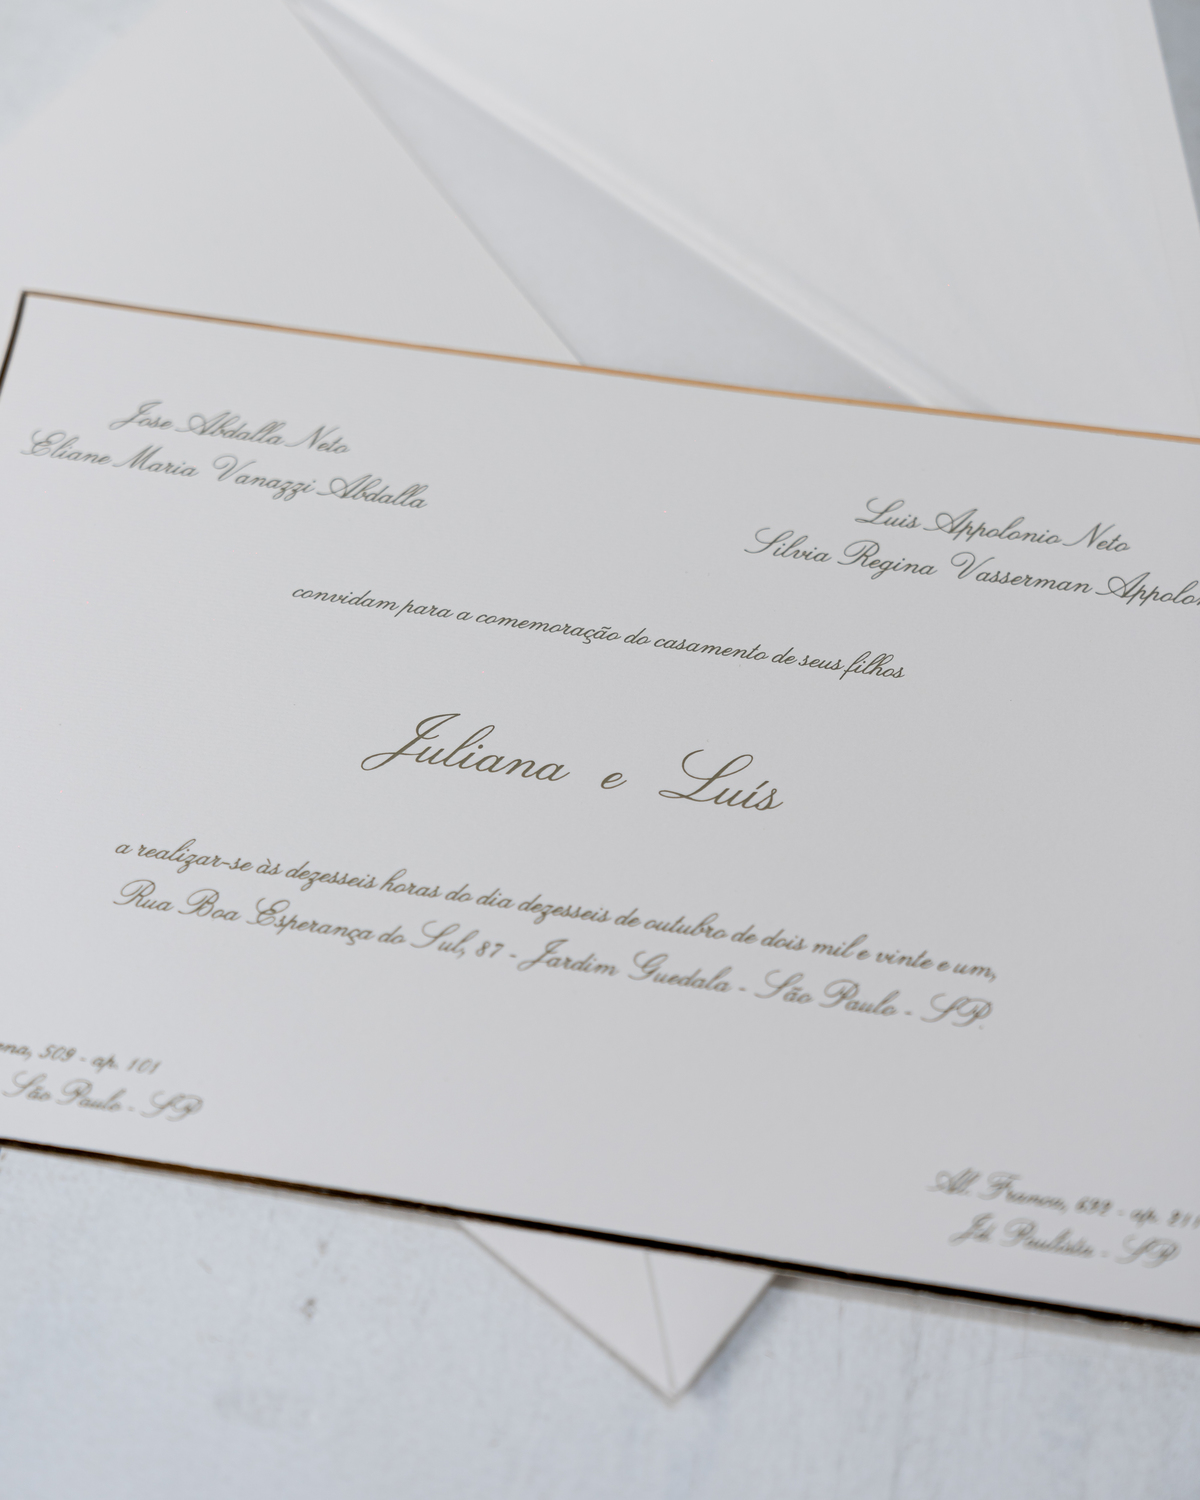 Jose Abdalla Neto
Eliane Maria Vanazzi Abdalla
Luis Appolonio Neto
Silvia Regina Vasserman
convidam para a comemoração do casamento de seus filhos
Juliana e Luís
a realizar-se às dezesseis horas do dia dezesseis de outubro de dois mil e vinte e um,
Rua Boa Esperança do Sul, 87 - Jardim Guedala - São Paulo - SP.
509 - ap. 101
São Paulo - SP
Al. Franca, - ap.
Jd. Paulista - SP